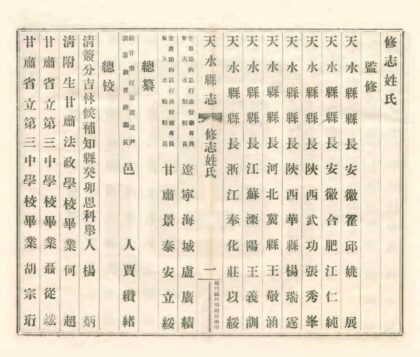 修志姓氏
監修
天水縣縣長安徽霍邱姚展
天水縣縣長安徽合肥江仁純
天水縣縣長陝西武功張秀峯
天水縣縣長陝西華縣楊瑞霆
天水縣縣長河北冀縣王敬涵
天水縣縣長江蘇溧陽王義訓
天水縣縣長浙江奉化莊以綏
天水縣志
修志姓氏
一
甘肅第四區行政督察專員
兼天水縣縣長
遼寧海城盧廣績
甘肅第四區行政督察專員
兼天水縣縣長
甘肅景泰安立綏
總纂
邑人賈纘緒
總校
清簽分吉林候補知縣癸卯恩科舉人楊炳
清附生甘肅法政學校畢業何超
甘肅省立第三中學校畢業聶從
甘肅省立第三中學校畢業胡宗珩